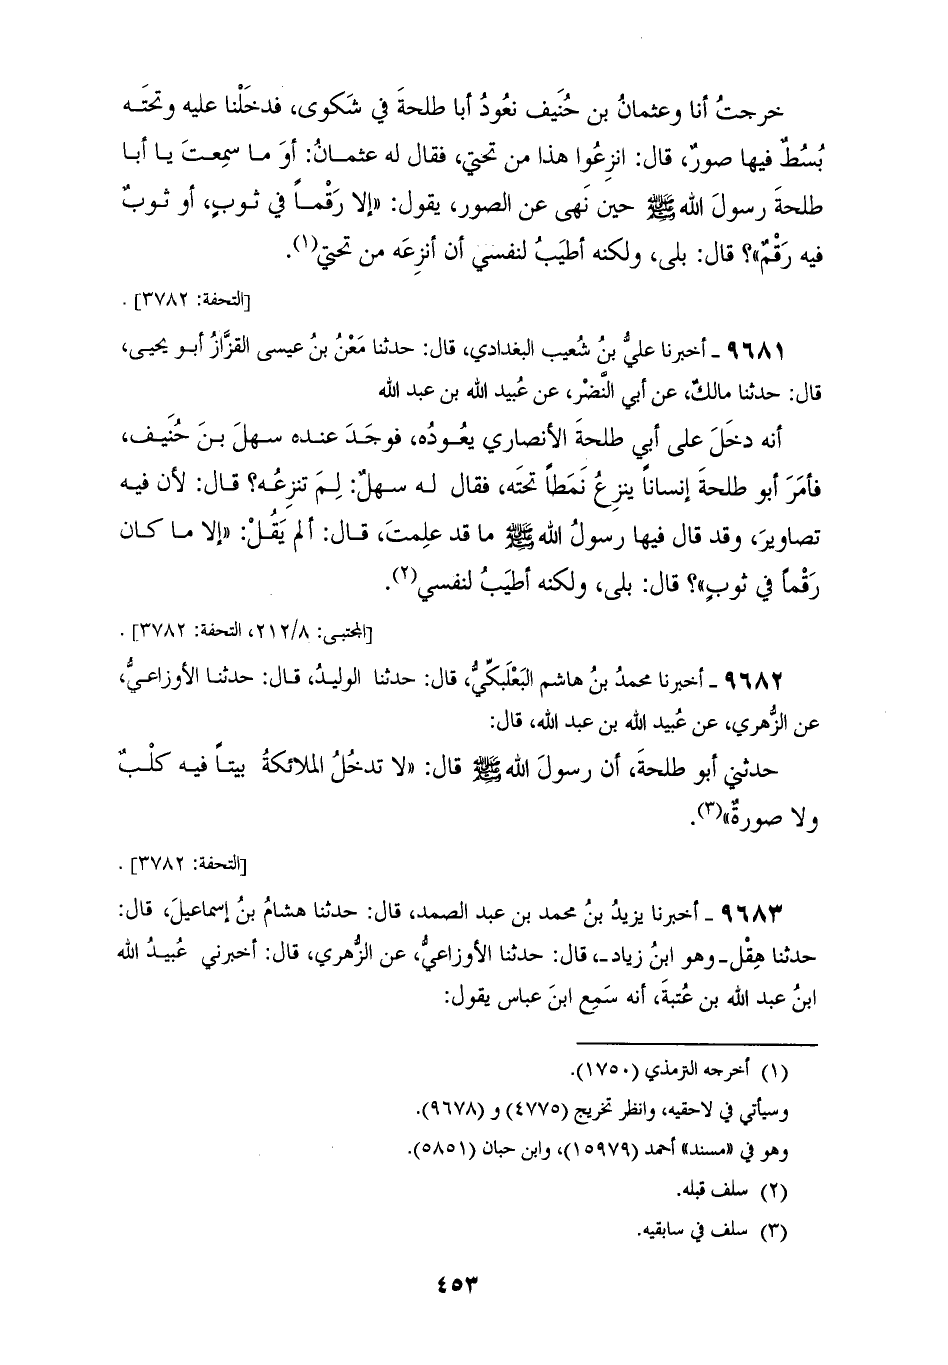 خرجتُ أنا وعثمانُ بن حُنَيف نعُودُ أبا طلحةَ في شَكوى، فدخَلْنا عليه وتحتَـه
بُسُطٌ فيها صورٌ، قال: انزِعُوا هذا من تحتي، فقال له عثمـانُ: أوَ مـا سمِعـتَ يـا أبـا
طلحةَ رسولَ الله ﷺ حين نَهى عن الصور، يقول: «إلا رَقْمـاً في ثـوبٍ، أو ثـوبٌ
فيه رَقْمٌ»؟ قال: بلى، ولكنه أطيَبُ لنفسي أن أنزِعَه من تحتي(١).
[التحفة: ٣٧٨٢] .
٩٦٨١ ـ أخبرنا عليُّ بنُ شعيب البغدادي، قال: حدثنا مَعْنُ بنُ عيسى القزَّازُ أبـو يحيى،
قال: حدثنا مالكٌ، عن أبي النَّضْر، عن عُبيد الله بن عبد الله
أنه دخَلَ على أبي طلحةَ الأنصاري يعُـودُه، فوجَـدَ عنـده سـهلَ بـنَ حُنَيـف،
فأمَرَ أبو طلحةَ إنساناً ينزِعُ نَمَطاً تحتَه، فقال لـه سـهلٌ: لِـمَ تنزِعُـه؟ قـال: لأن فيـه
تصاويرَ، وقد قال فيها رسولُ الله ﷺ ما قد علِمتَ، قـال: ألم يَقُـلْ: «إلا مـا كـان
رَقْماً في ثوبٍ»؟ قال: بلى، ولكنه أطيَبُ لنفسي(٢).
[المجتبى: ٢١٢/٨، التحفة: ٣٧٨٢] .
٩٦٨٢ ـ أخبرنا محمدُ بنُ هاشم البَعْلَبكِّيُّ، قال: حدثنا الوليـدُ، قـال: حدثنـا الأوزاعـيُّ،
عن الزُّهري، عن عُبيد الله بن عبد الله، قال:
حدثني أبو طلحةَ، أن رسولَ الله ﷺ قال: «لا تدخُلُ الملائكةُ بيتـاً فيـه كلْـبٌ
ولا صورةٌ»(٣).
[التحفة: ٣٧٨٢] .
٩٦٨٣ ـ أخبرنا يزيدُ بنُ محمد بن عبد الصمد، قال: حدثنا هشامُ بنُ إسماعيلَ، قال:
حدثنا هِقْل ـ وهو ابنُ زياد ـ، قال: حدثنا الأوزاعيُّ، عن الزُّهري، قال: أخبرني عُبيـدُ الله
ابنُ عبد الله بن عُتبةَ، أنه سَمِع ابنَ عباس يقول:
(١) أخرجه الترمذي (١٧٥٠).
وسيأتي في لاحقيه، وانظر تخريج (٤٧٧٥) و (٩٦٧٨).
وهو في «مسند» أحمد (١٥٩٧٩)، وابن حبان (٥٨٥١).
(٢) سلف قبله.
(٣) سلف في سابقيه.
٤٥٣